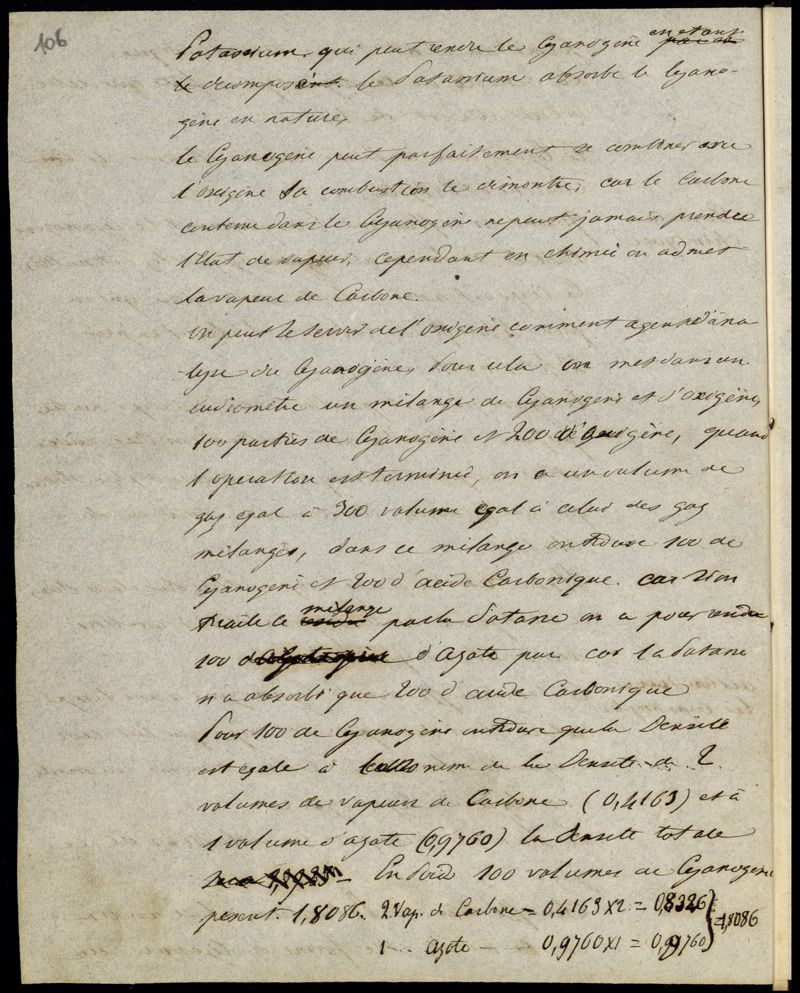 106
Potassium, qui peut rendre le Cyanogène en étant
le decomposant. le Potassium absorbe le Cyano-
gène en nature,
le Cyanogène peut parfaitement se combiner avec
l'oxigène Sa combustion le démontre, car le Carbone
contenu dans le Cyanogène ne peut jamais prendre
l'Etat de vapeur, cependant en chimie on admet
la vapeur de Carbone.
on peut se servir de l'oxigène comment agent d'ana
lyse du Cyanogène, Pour cela on met dans un
eudiomètre un mélange de Cyanogène et d'oxigène,
100 parties de Cyanogène et 200 d'Oxigène, quand
l'operation est terminée, on a un volume de
gaz egal à 300 volume egal à celui des gaz
mélangés, dans ce mélange on 100 de
Cyanogène et 200 d'acide Carbonique. car si on
traite ce mélange par la Potasse on a pour
100 d'azote pur car la Potasse
n'a absorbé que 200 d'acide Carbonique
Pour 100 de Cyanogène que la Densité
est egale à la Densité de 2
volumes de vapeur de Carbone (0,4163) et à
1 volume d'azote (0,9760) la densité totale
En Poid 100 volumes de Cyanogène
pesent. 1,8086. 2 Vap. de Carbone = 0,4163 x 2 = 0,8326
1 .. azote — 0,9760 x 1 = 0,9760 } = 1,8086